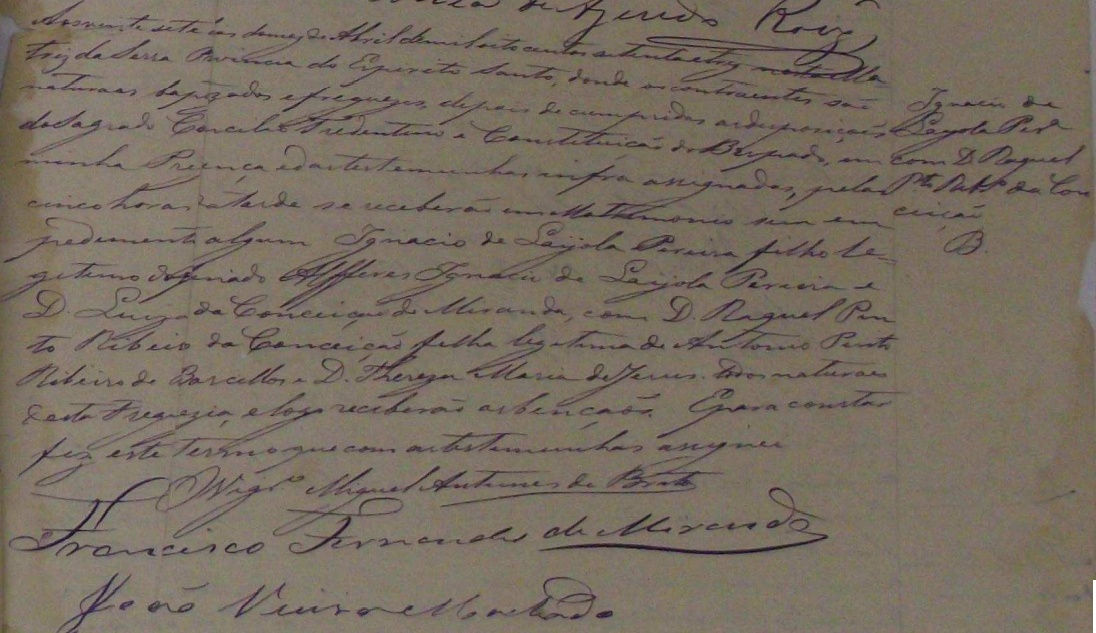 de Azeredo Roiz
Aos vinte sete dias do mez de Abril de mil oito centos setenta e trez nesta Ma
triz da Serra Provincia do Espirito Santo, donde os contraentes são
naturaes bapizados e freguezes, depois de cumpridas as disposições
do Sagrado Concilio Tredentino e Constituição do Bispado, em
minha Prezença e das testemunhas infra assignadas, pelas
cinco horas da tarde se receberão em Mathimonio sem em
pedimento algum Ignacio de Layola Pereira filho le-
gitimo do finado Alfferes Ignacio de Layola Pereira e
D. Luiza da Conceição de Miranda, com D. Raquel Pin
to Ribeiro da Conceição filha legitima de Antonio Pinto
Ribeiro de Barcellos e D. Thereza Maria de Jesus. Todos naturaes
desta Freguezia, e logo receberão as bençãos. E para constar
fiz este termo que com as testemunhas assignei
Vigrº Miguel Antunes de Brito
Francisco Fernandes de Miranda
João Vieira Machado
Ignacio de
Layola Perª
com D. Raquel
Pto Ribrº da Con
ceição
B.